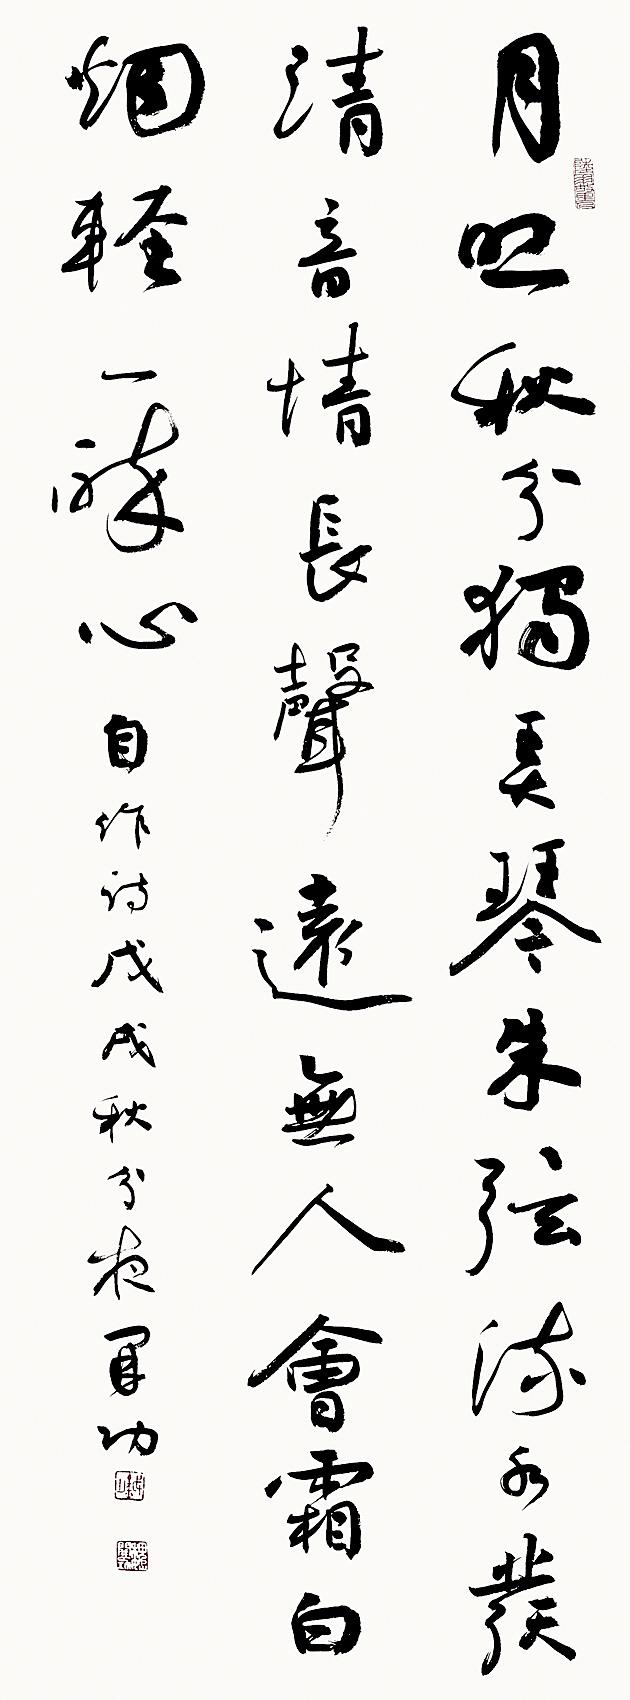 月照秋分獨弄琴朱弦流水發
清音情長聲遠無人會霜白
烟輕一醉心
自作詩戊戌秋分夜功